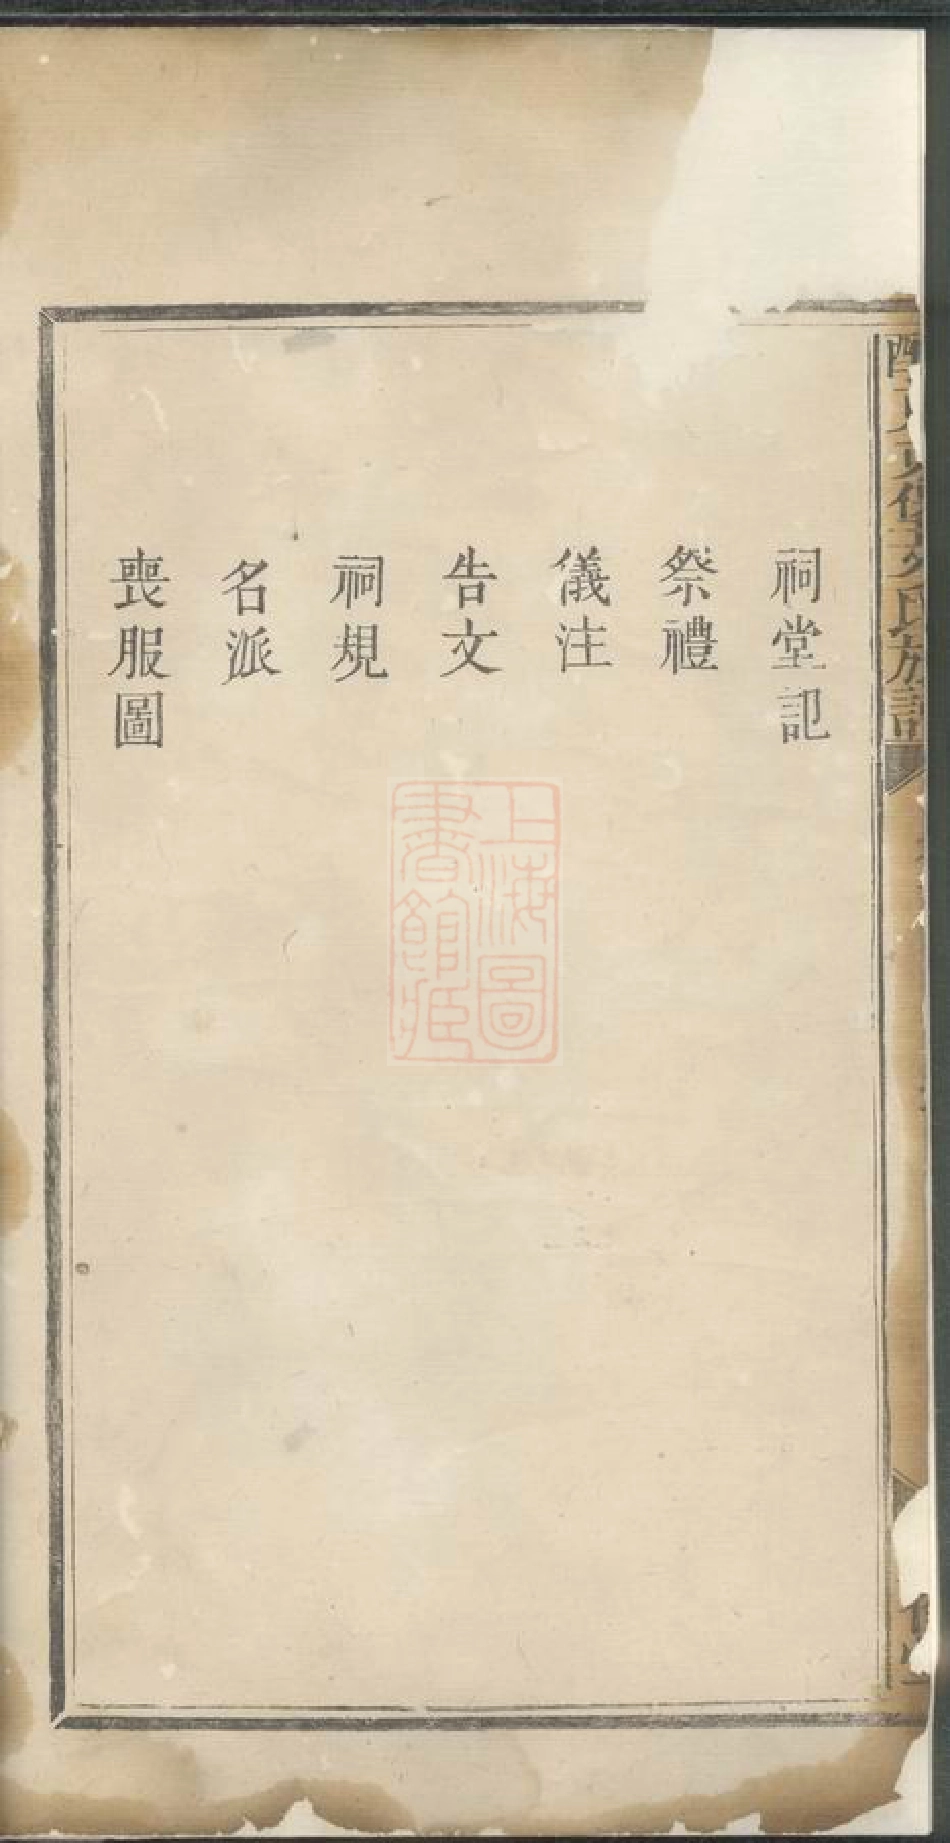 祠堂記
祭禮
儀注
告文
祠規
名派
喪服圖
上海圖
書館藏
氏族譜